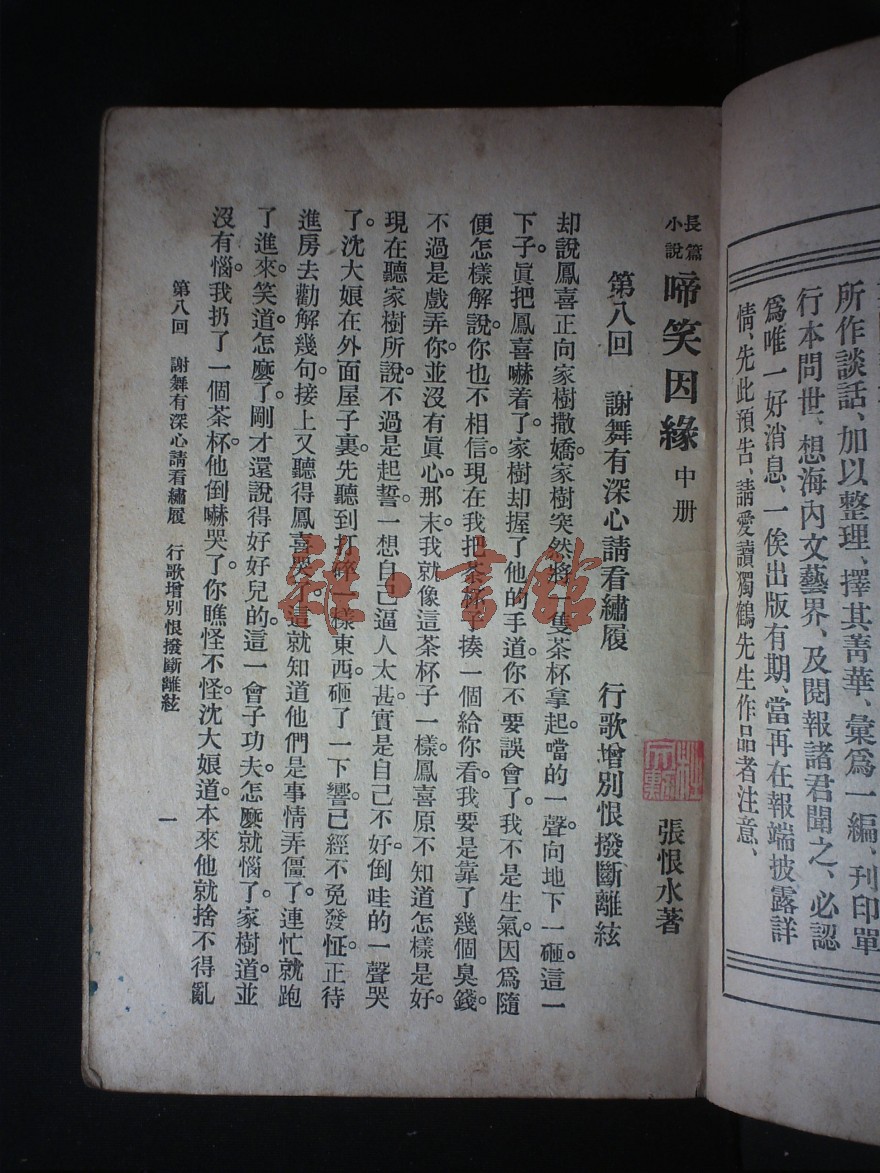 所作談話、加以整理、擇其菁華、彙爲一編、刊印單
行本問世、想海內文藝界、及閱報諸君聞之、必認
爲唯一好消息、一俟出版有期、當再在報端披露詳
情、先此預告、請愛讀獨鶴先生作品者注意、
長篇小說 啼笑因緣 中册 張恨水著
第八回 謝舞有深心請看繡履 行歌增別恨撥斷離絃
却說鳳喜正向家樹撒嬌。家樹突然將一隻茶杯拿起。噹的一聲。向地下一砸。這一
下子。眞把鳳喜嚇着了。家樹却握了他的手道。你不要誤會了。我不是生氣。因爲隨
便怎樣解說。你也不相信。現在我把茶杯子揍一個給你看。我要是靠了幾個臭錢。
不過是戲弄你。並沒有眞心。那末。我就像這茶杯子一樣。鳳喜原不知道怎樣是好。
現在聽家樹所說。不過是起誓。一想自己逼人太甚。實是自己不好。倒哇的一聲哭
了。沈大娘在外面屋子裏。先聽到打碎一樣東西。砸了一下響。已經不免發怔。正待
進房去勸解幾句。接上又聽得鳳喜哭了。這就知道他們是事情弄僵了。連忙就跑
了進來。笑道。怎麼了。剛才還說得好好兒的。這一會子功夫。怎麼就惱了。家樹道。並
沒有惱。我扔了一個茶杯。他倒嚇哭了。你瞧怪不怪。沈大娘道。本來他就捨不得亂
第八回 謝舞有深心請看繡履 行歌增別恨撥斷離絃 一
雜·書館